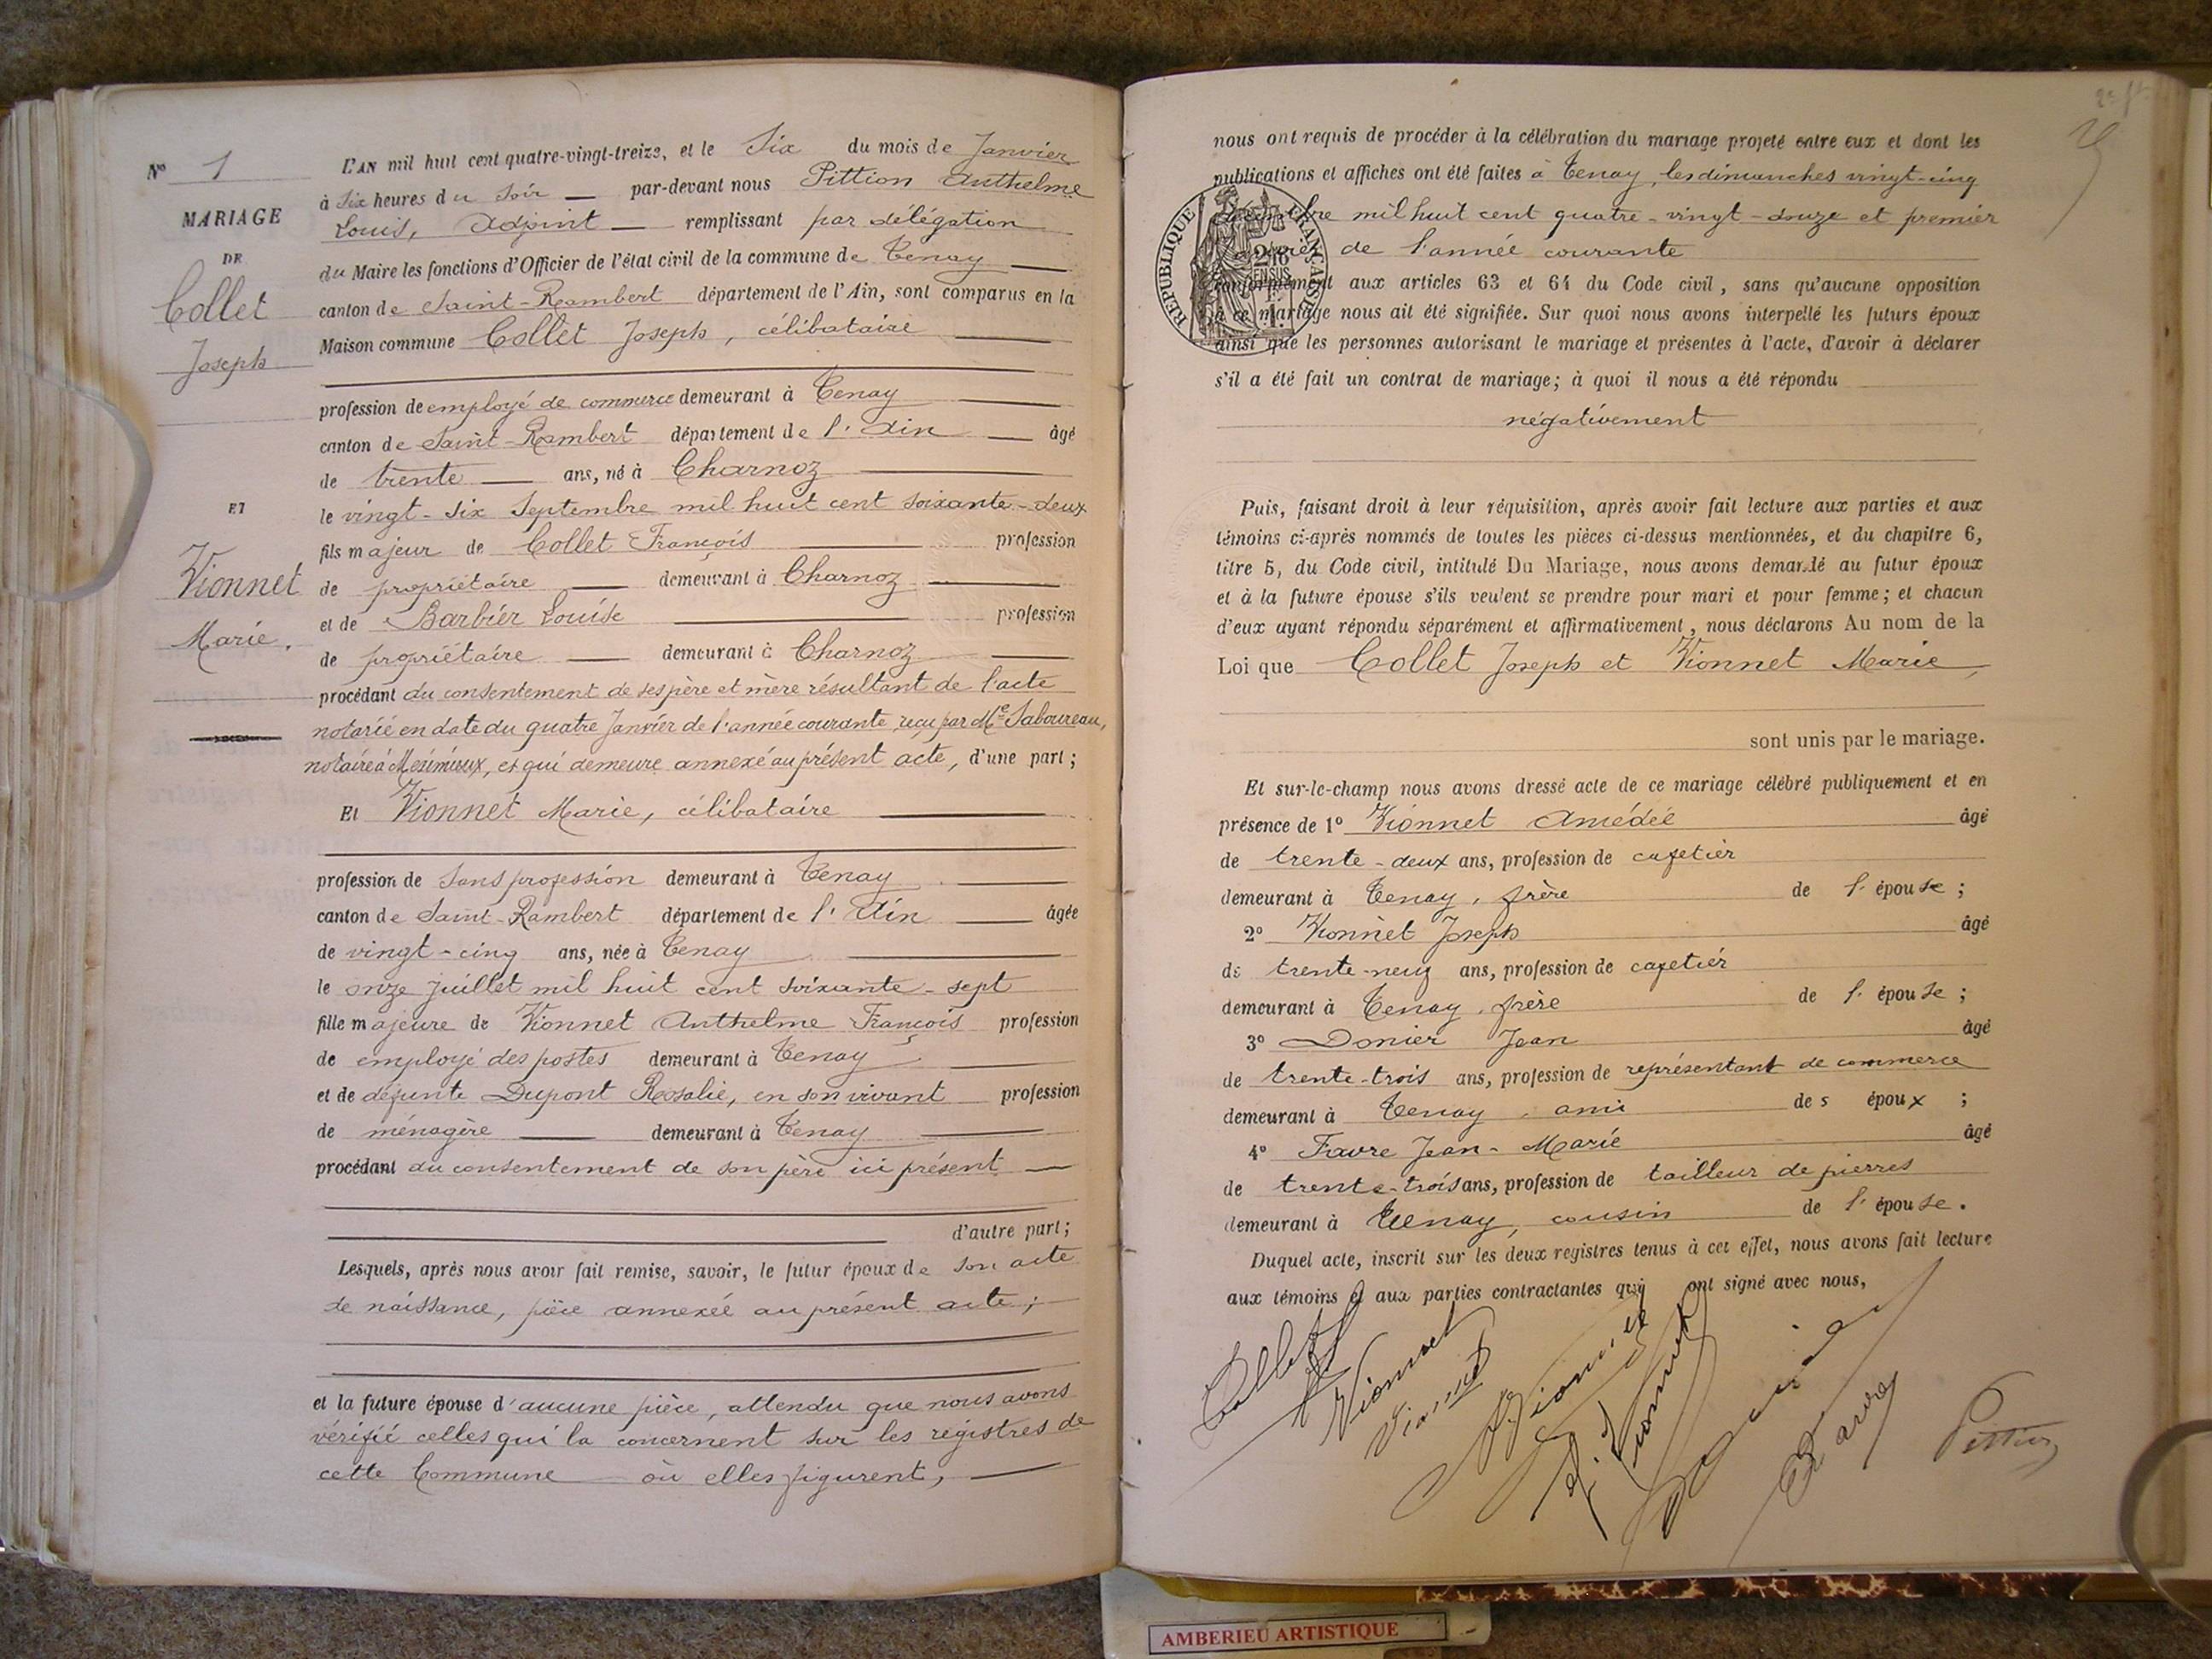 Nº 1
MARIAGE
DE
Collet
Joseph
ET
Vionnet
Marie.
L'AN mil huit cent quatre-vingt-treize, et le Six du mois de Janvier
à Six heures du Soir — par-devant nous Pittion Anthelme
Louis, Adjoint — remplissant par délégation
du Maire les fonctions d'Officier de l'état civil de la commune de Tenay —
canton de Saint-Rambert département de l'Ain, sont comparus en la
Maison commune Collet Joseph, célibataire
profession de employé de commerce demeurant à Tenay
canton de Saint-Rambert département de l'Ain — âgé
de trente — ans, né à Charnoz
le vingt-six Septembre mil huit cent soixante-deux
fils majeur de Collet François — profession
de propriétaire — demeurant à Charnoz
et de Barbier Louise — profession
de propriétaire — demeurant à Charnoz —
procédant du consentement de ses père et mère résultant de l'acte
notarié en date du quatre Janvier de l'année courante, reçu par Me Saboureau,
notaire à Meximieux, et qui demeure annexé au présent acte, d'une part;
Et Vionnet Marie, célibataire
profession de Sans profession demeurant à Tenay
canton de Saint-Rambert département de l'Ain — âgée
de vingt-cinq ans, née à Tenay
le onze Juillet mil huit cent soixante-sept
fille majeure de Vionnet Anthelme François profession
de employé des postes demeurant à Tenay
et de défunte Dupont Rosalie, en son vivant profession
de ménagère — demeurant à Tenay
procédant du consentement de son père ici présent —
d'autre part;
Lesquels, après nous avoir fait remise, savoir, le futur époux de son acte
de naissance, pièce annexée au présent acte;
et la future épouse d'aucune pièce, attendu que nous avons
vérifié celles qui la concernent sur les registres de
cette Commune où elles figurent, —
nous ont requis de procéder à la célébration du mariage projeté entre eux et dont les
publications et affiches ont été faites à Tenay, les dimanches vingt-cinq
mil huit cent quatre-vingt-douze et premier
de l'année courante
REPUBLIQUE FRANÇAISE
conformément aux articles 63 et 64 du Code civil, sans qu'aucune opposition
à ce mariage nous ait été signifiée. Sur quoi nous avons interpellé les futurs époux
ainsi que les personnes autorisant le mariage et présentes à l'acte, d'avoir à déclarer
s'il a été fait un contrat de mariage; à quoi il nous a été répondu
négativement
Puis, faisant droit à leur réquisition, après avoir fait lecture aux parties et aux
témoins ci-après nommés de toutes les pièces ci-dessus mentionnées, et du chapitre 6,
titre 5, du Code civil, intitulé Du Mariage, nous avons demandé au futur époux
et à la future épouse s'ils veulent se prendre pour mari et pour femme; et chacun
d'eux ayant répondu séparément et affirmativement, nous déclarons Au nom de la
Loi que Collet Joseph et Vionnet Marie,
sont unis par le mariage.
Et sur-le-champ nous avons dressé acte de ce mariage célébré publiquement et en
présence de 1º Vionnet Amédée âgé
de trente-deux ans, profession de cafetier
demeurant à Tenay, frère de l'épouse;
2º Vionnet Joseph âgé
de trente-neuf ans, profession de cafetier
demeurant à Tenay, frère de l'épouse;
3º Donier Jean âgé
de trente-trois ans, profession de représentant de commerce
demeurant à Tenay, ami des époux;
4º Favre Jean-Marie âgé
de trente-trois ans, profession de tailleur de pierres
demeurant à Tenay, cousin de l'épouse.
Duquel acte, inscrit sur les deux registres tenus à cet effet, nous avons fait lecture
aux témoins et aux parties contractantes qui ont signé avec nous,
Collet Vionnet Vionnet Vionnet Vionnet Donier Favre Pittion
AMBERIEU ARTISTIQUE